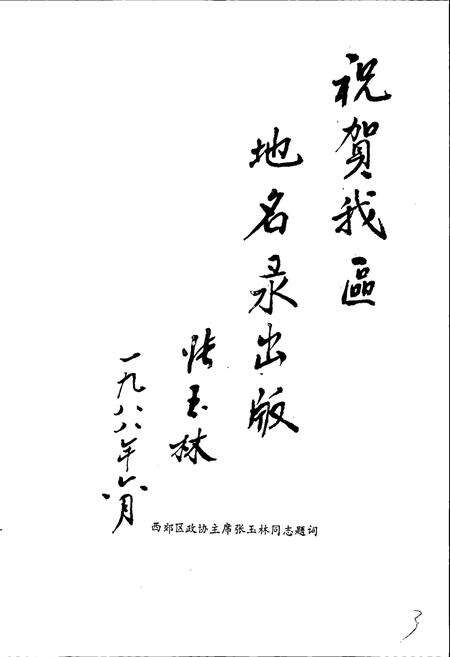 祝贺我區
地名录出版
张玉林
一九八八年八月
西郊区政协主席张玉林同志题词
3